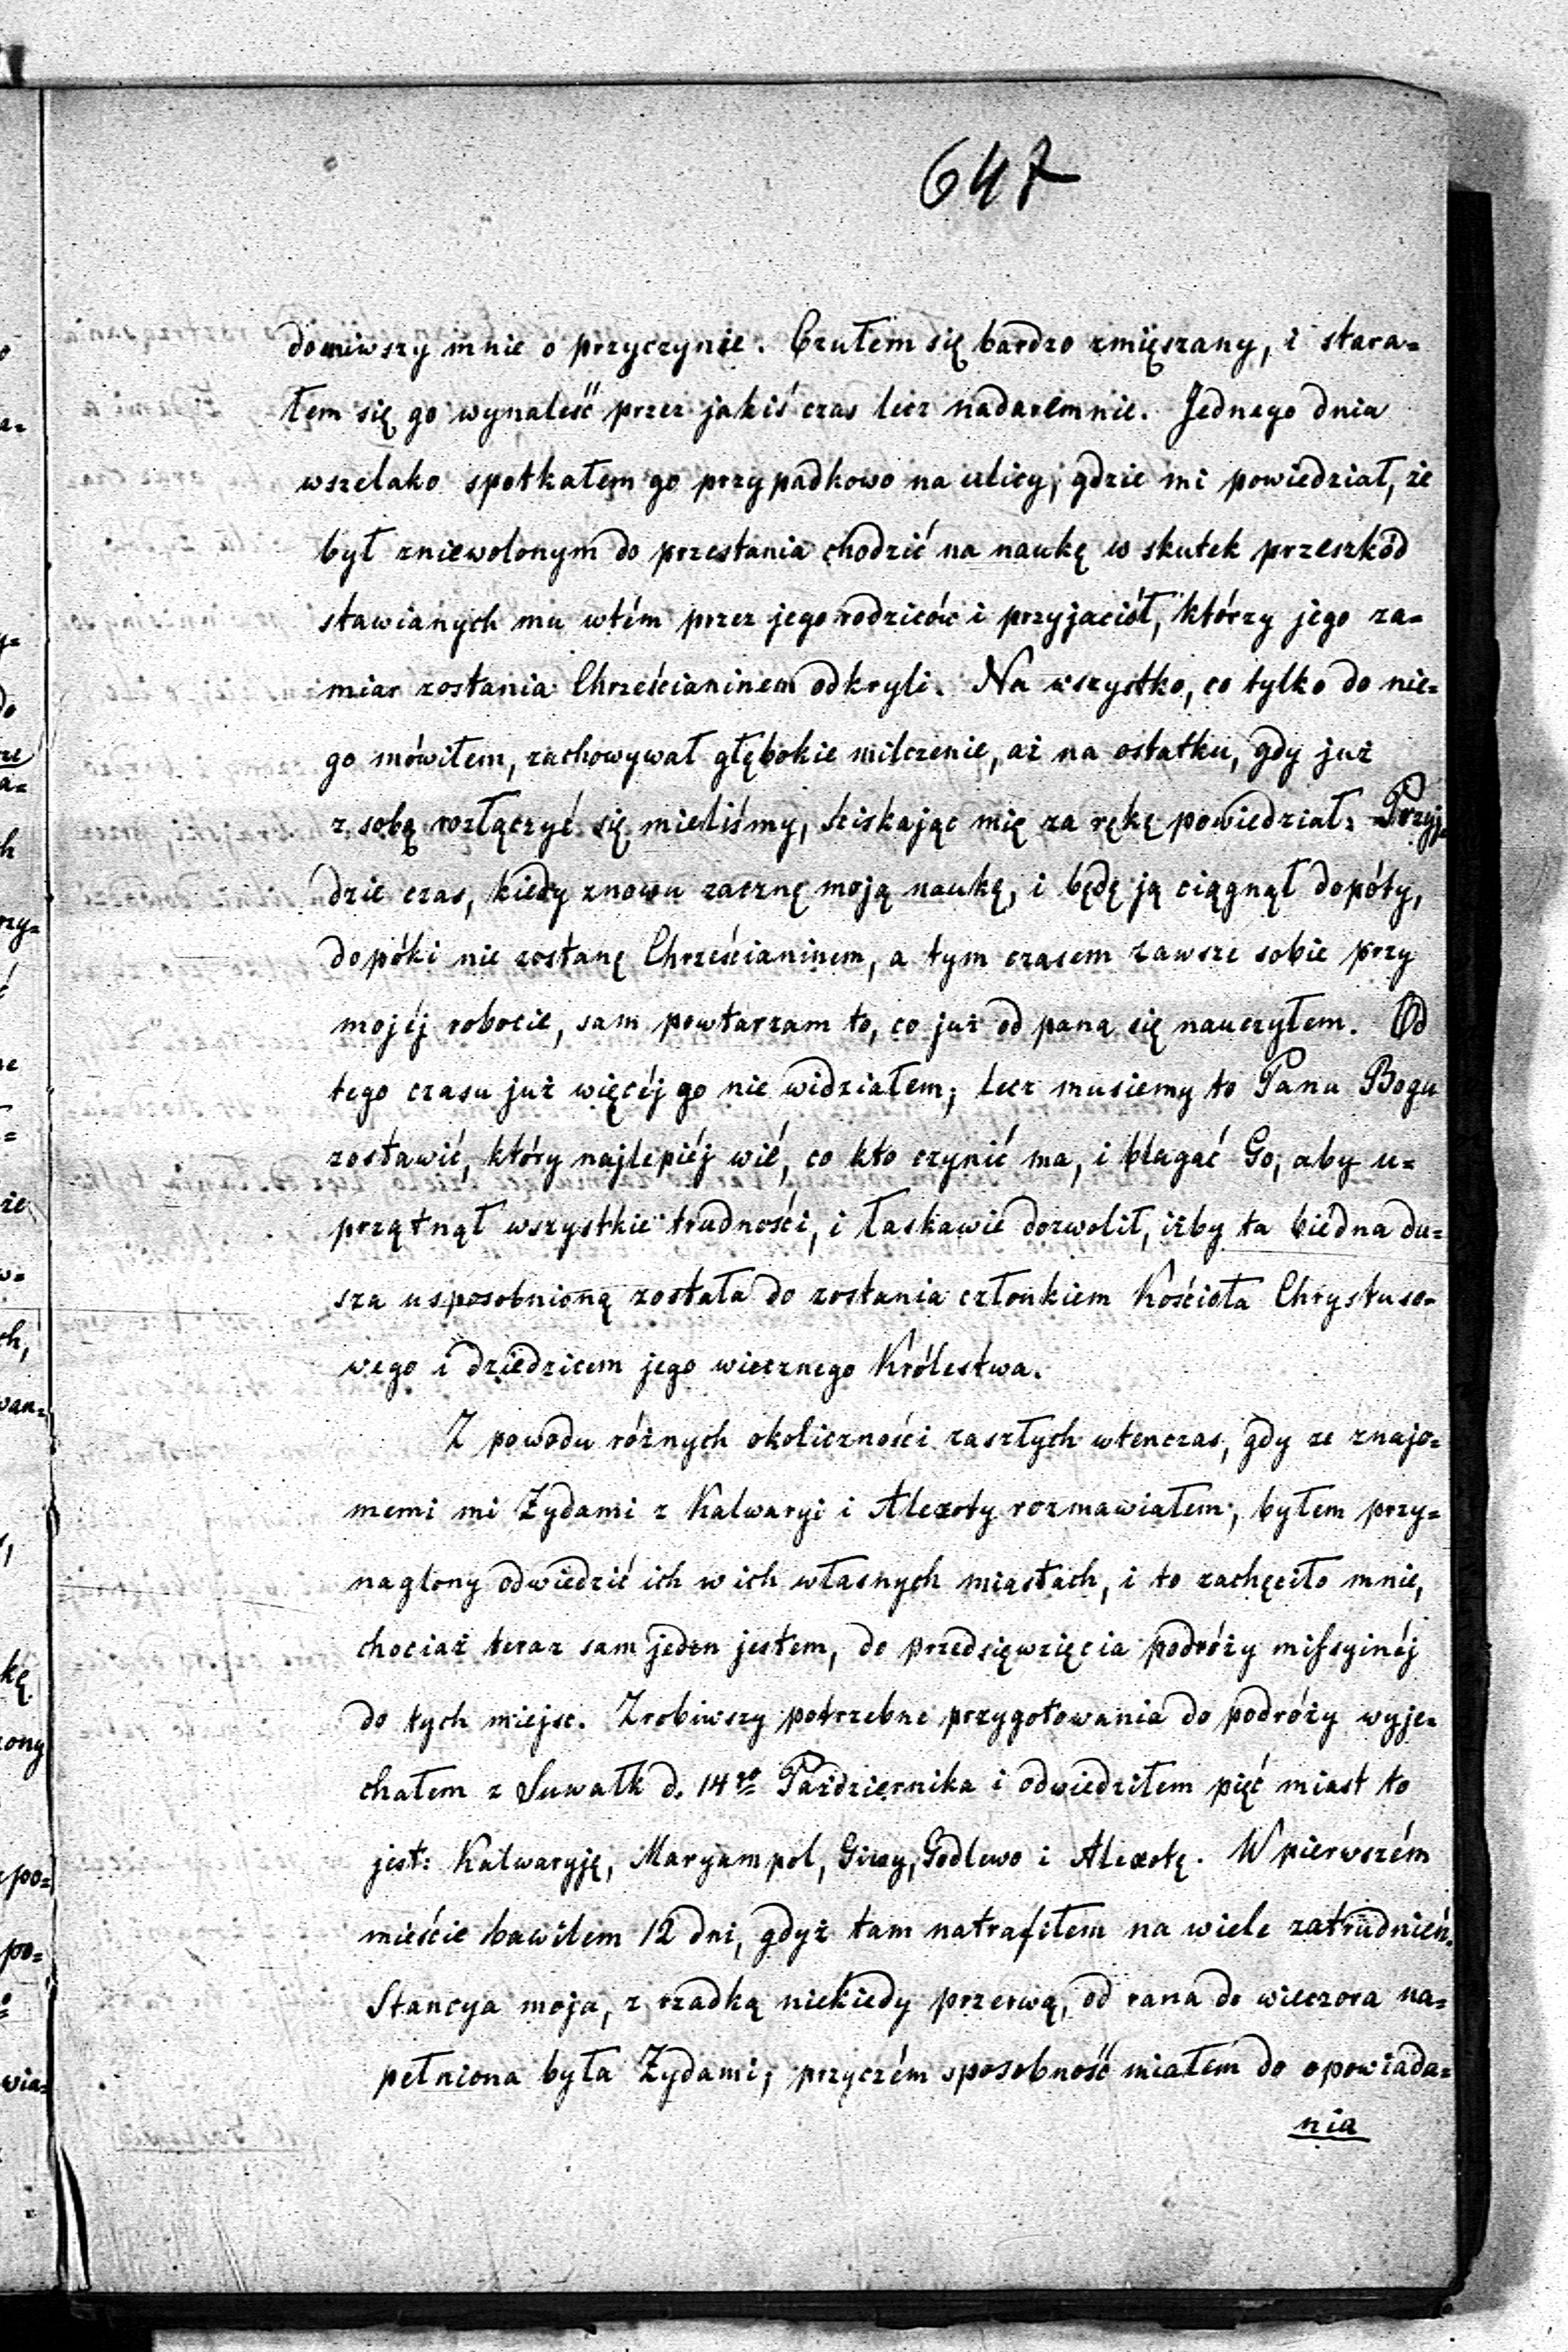 647
domiwszy mnie o przyczynie. Czułem się bardzo zmięszany, i stara=
łem się go wynaleść przez jakiś czas lecz nadaremnie. Jednego dnia
wszelako spotkałem go przypadkowo na ulicy, gdzie mi powiedział, że
był zniewolonym do przestania chodzić na naukę w skutek przeszkód
stawianych mu wtém przez jego rodziców i przyjaciół, którzy jego za=
miar zostania Chrześcianinem odkryli. Na wszystko, co tylko do nie=
go mówiłem, zachowywał głębokie milczenie, aż na ostatku, gdy już
z sobą rozłączyć się mieliśmy, ściskając mię za rękę powiedział: Przyj=
dzie czas, kiedy znowu zacznę moją naukę, i będę ją ciągnął dopóty,
dopóki nie zostanę Chrześcianinem, a tym czasem zawsze sobie przy
mojéj robocie, sam powtarzam to, co już od pana się nauczyłem. Od
tego czasu już więcéj go nie widziałem; lecz musiemy to Panu Bogu
zostawić, który najlepiéj wié, co kto czynić ma, i błagać Go, aby u=
przątnął wszystkie trudności, i łaskawie dozwolił, iżby ta biedna du=
sza usposobnioną została do zostania członkiem Kościoła Chrystuso=
wego i dziedzicem jego wiecznego Królestwa.
Z powodu różnych okoliczności zaszłych wtenczas, gdy ze znajo=
memi mi Żydami z Kalwaryi i Alexoty rozmawiałem, byłem przy=
naglony odwiedzić ich w ich własnych miastach, i to zachęciło mnie,
chociaż teraz sam jeden jestem, do przedsięwzięcia podróży missyinéj
do tych miejsc. Zrobiwszy potrzebne przygotowania do podróży wyje=
chałem z Suwałk d. 14go Października i odwiedziłem pięć miast to
jest: Kalwaryję, Maryampol, Godlewo i Alexotę. W pierwszém
mieście bawiłem 12 dni, gdyż tam natrafiłem na wiele zatrudnień.
Stancya moja, z rzadką niekiedy przerwą, od rana do wieczora na=
pełniona była Żydami; przyczém sposobność miałem do opowiada=
nia